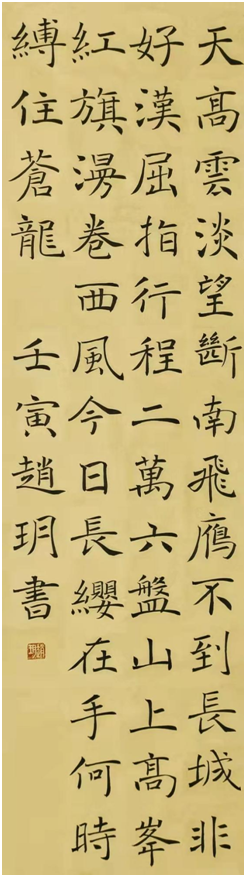 天高雲淡望斷南飛鴈不到長城非
好漢屈指行程二萬六盤山上高峯
紅旗漫卷西風今日長纓在手何時
縛住蒼龍 壬寅趙玥書